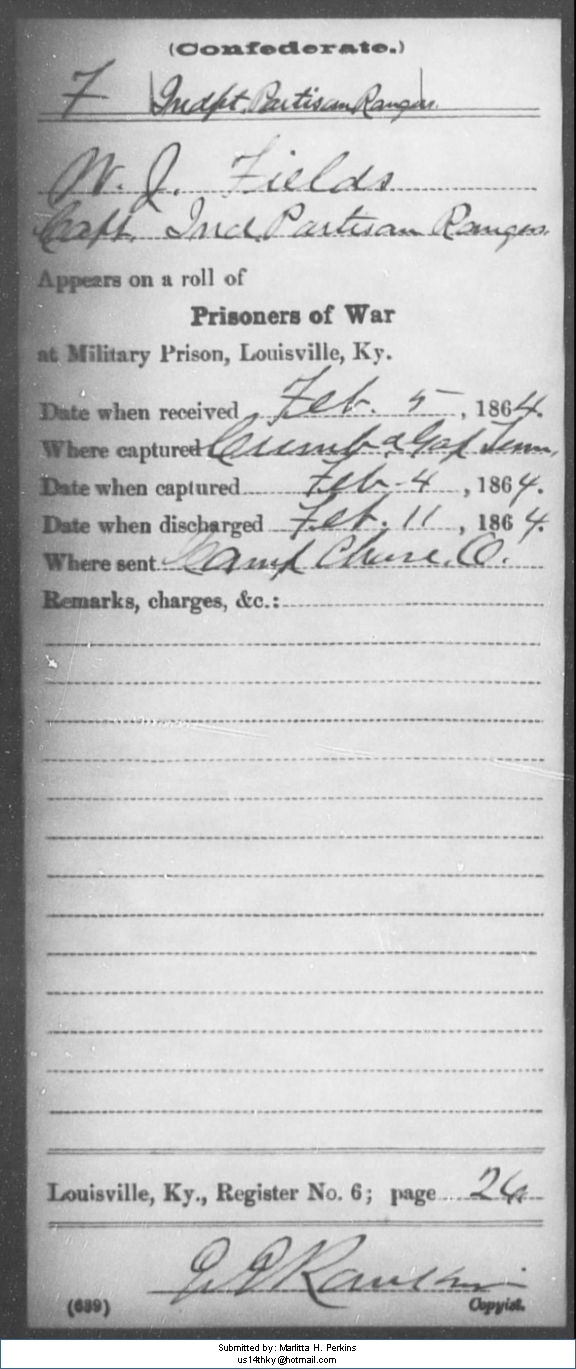 (Confederate.)
F Indpt. Partisan Rangers.
W. J. Fields
Capt. Ind. Partisan Rangers.
Appears on a roll of
Prisoners of War
at Military Prison, Louisville, Ky.
Date when received Feb. 5, 1864.
Where captured Cumb'd Gap Tenn.
Date when captured Feb. 4, 1864.
Date when discharged Feb. 11, 1864.
Where sent Camp Chase. O.
Remarks, charges, &c.:
Louisville, Ky., Register No. 6; page 26
(639) Copyist.
Submitted by: Marlitta H. Perkins
us14thky@hotmail.com